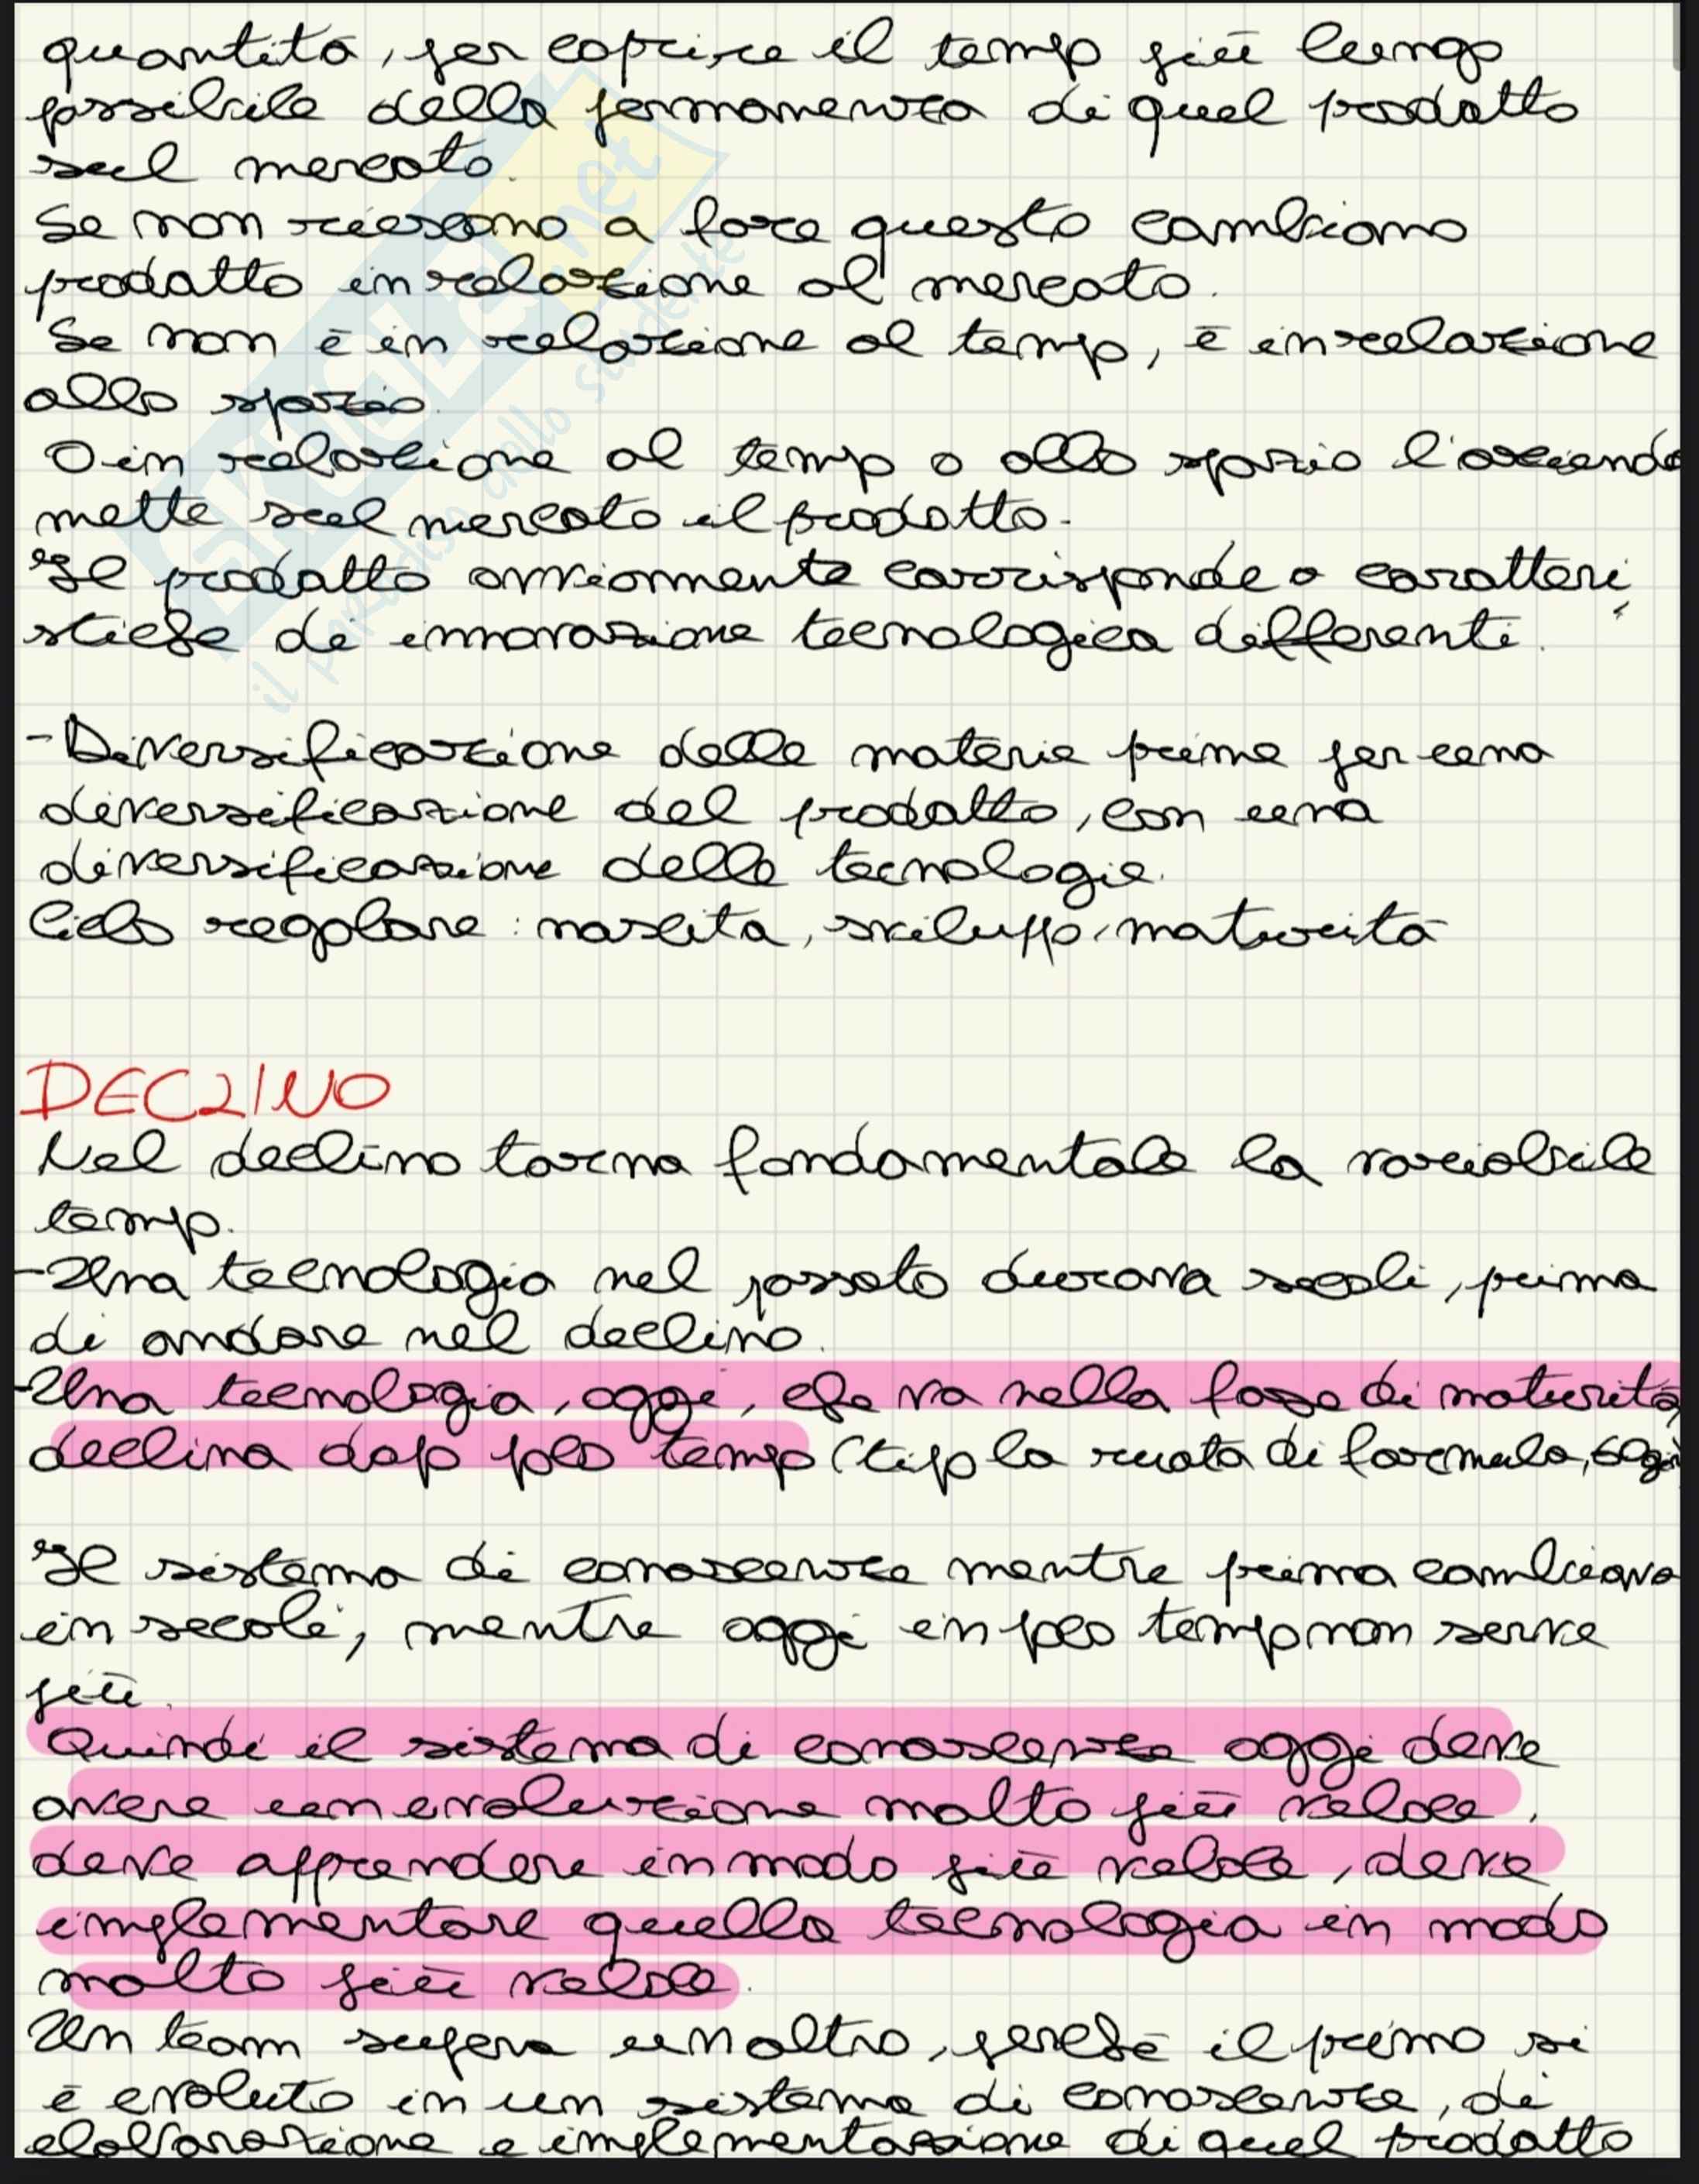 quantità, per coprire il tempo più lungo
possibile della permanenza di quel prodotto
sul mercato.
Se non riescono a fare questo cambiano
prodotto in relazione al mercato.
Se non è in relazione al tempo, è in relazione
allo spazio.
O in relazione al tempo o allo spazio l'azienda
mette sul mercato il prodotto.
Il prodotto ovviamente corrisponde a caratteri
stiche di innovazione tecnologica differenti.
-Diversificazione delle materie prime per una
diversificazione del prodotto, con una
diversificazione delle tecnologie.
Ciclo regolare: nascita, sviluppo, maturità
DECLINO
Nel declino torna fondamentale la variabile
tempo.
-Una tecnologia nel passato durava secoli, prima
di andare nel declino.
-Una tecnologia, oggi, che va nella fase di maturità,
declina dopo poco tempo (tipo la ruota di formula,
Il sistema di conoscenze mentre prima cambiava
in secoli, mentre oggi in poco tempo non serve
più.
Quindi il sistema di conoscenze oggi deve
avere un evoluzione molto più veloce,
deve apprendere in modo più veloce, deve
implementare quella tecnologia in modo
molto più veloce.
Un team supera un altro, perché il primo si
è evoluto in un sistema di conoscenze, di
elaborazione e implementazione di quel prodotto
SKUOLA.net
il paradiso dello studente